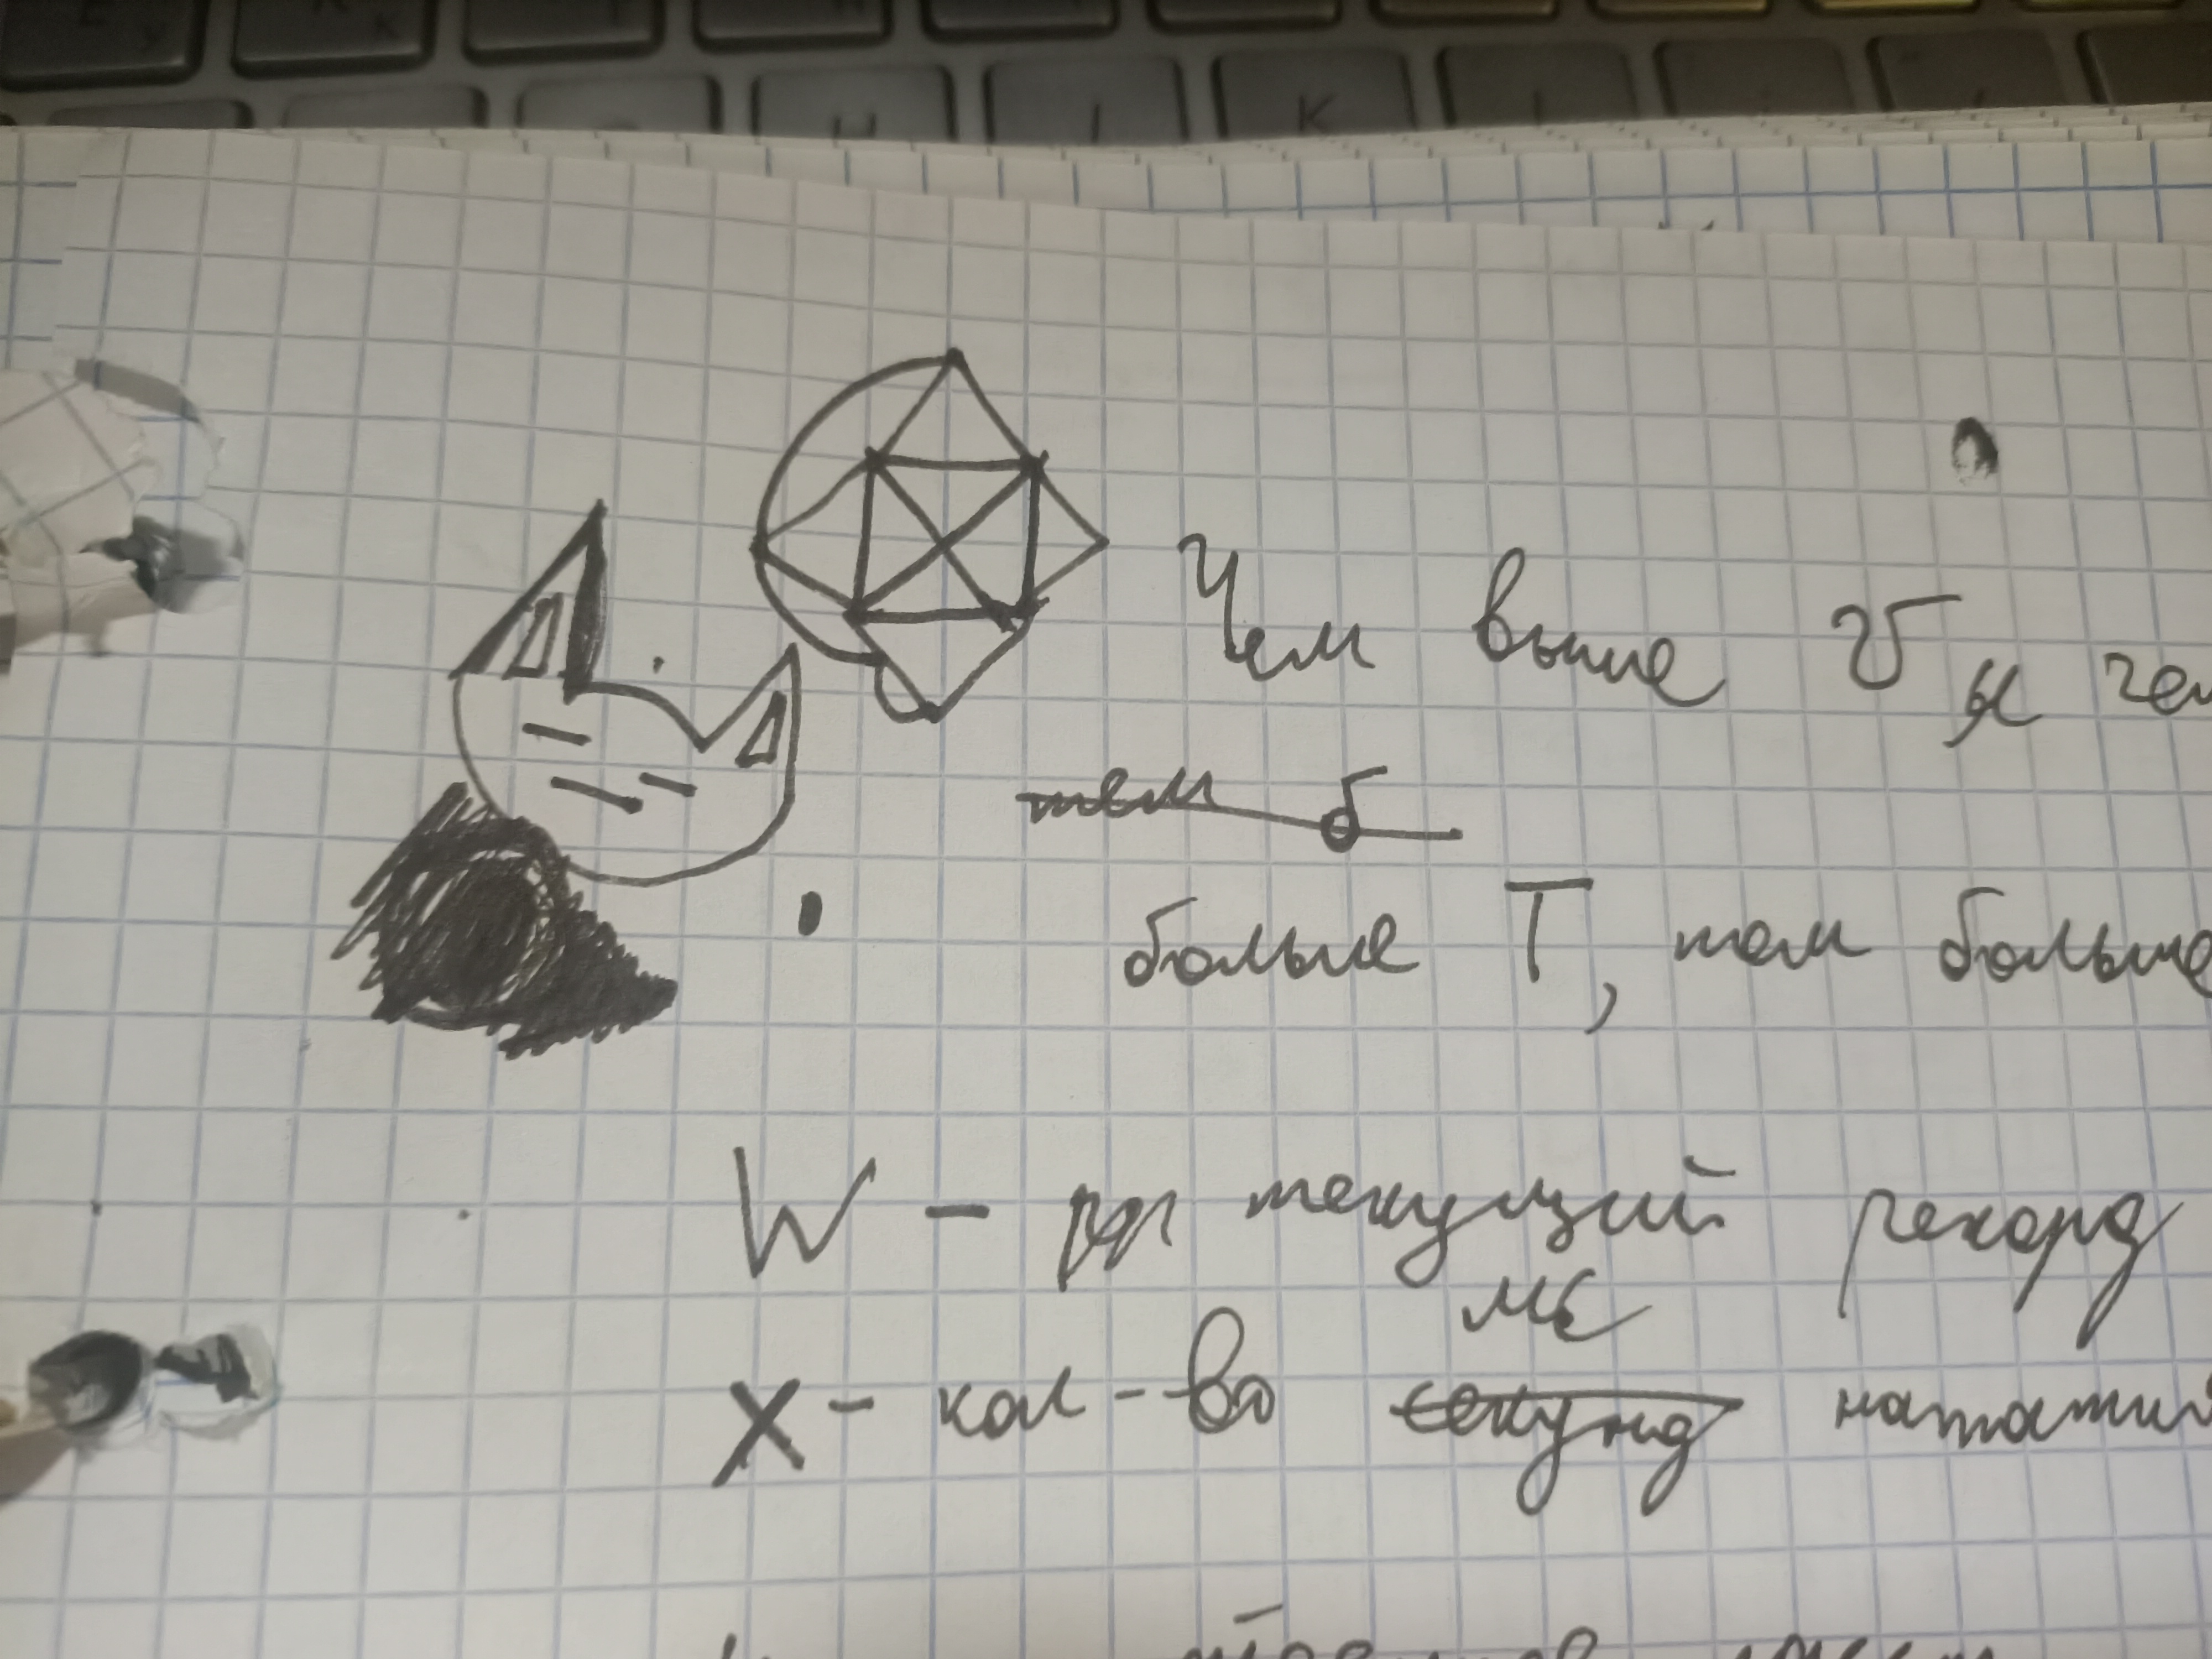 Чем выше V и чем
тем б
больше T, тем больше
W - текущий рекорд
мс
X - кол-во секунд нажатия